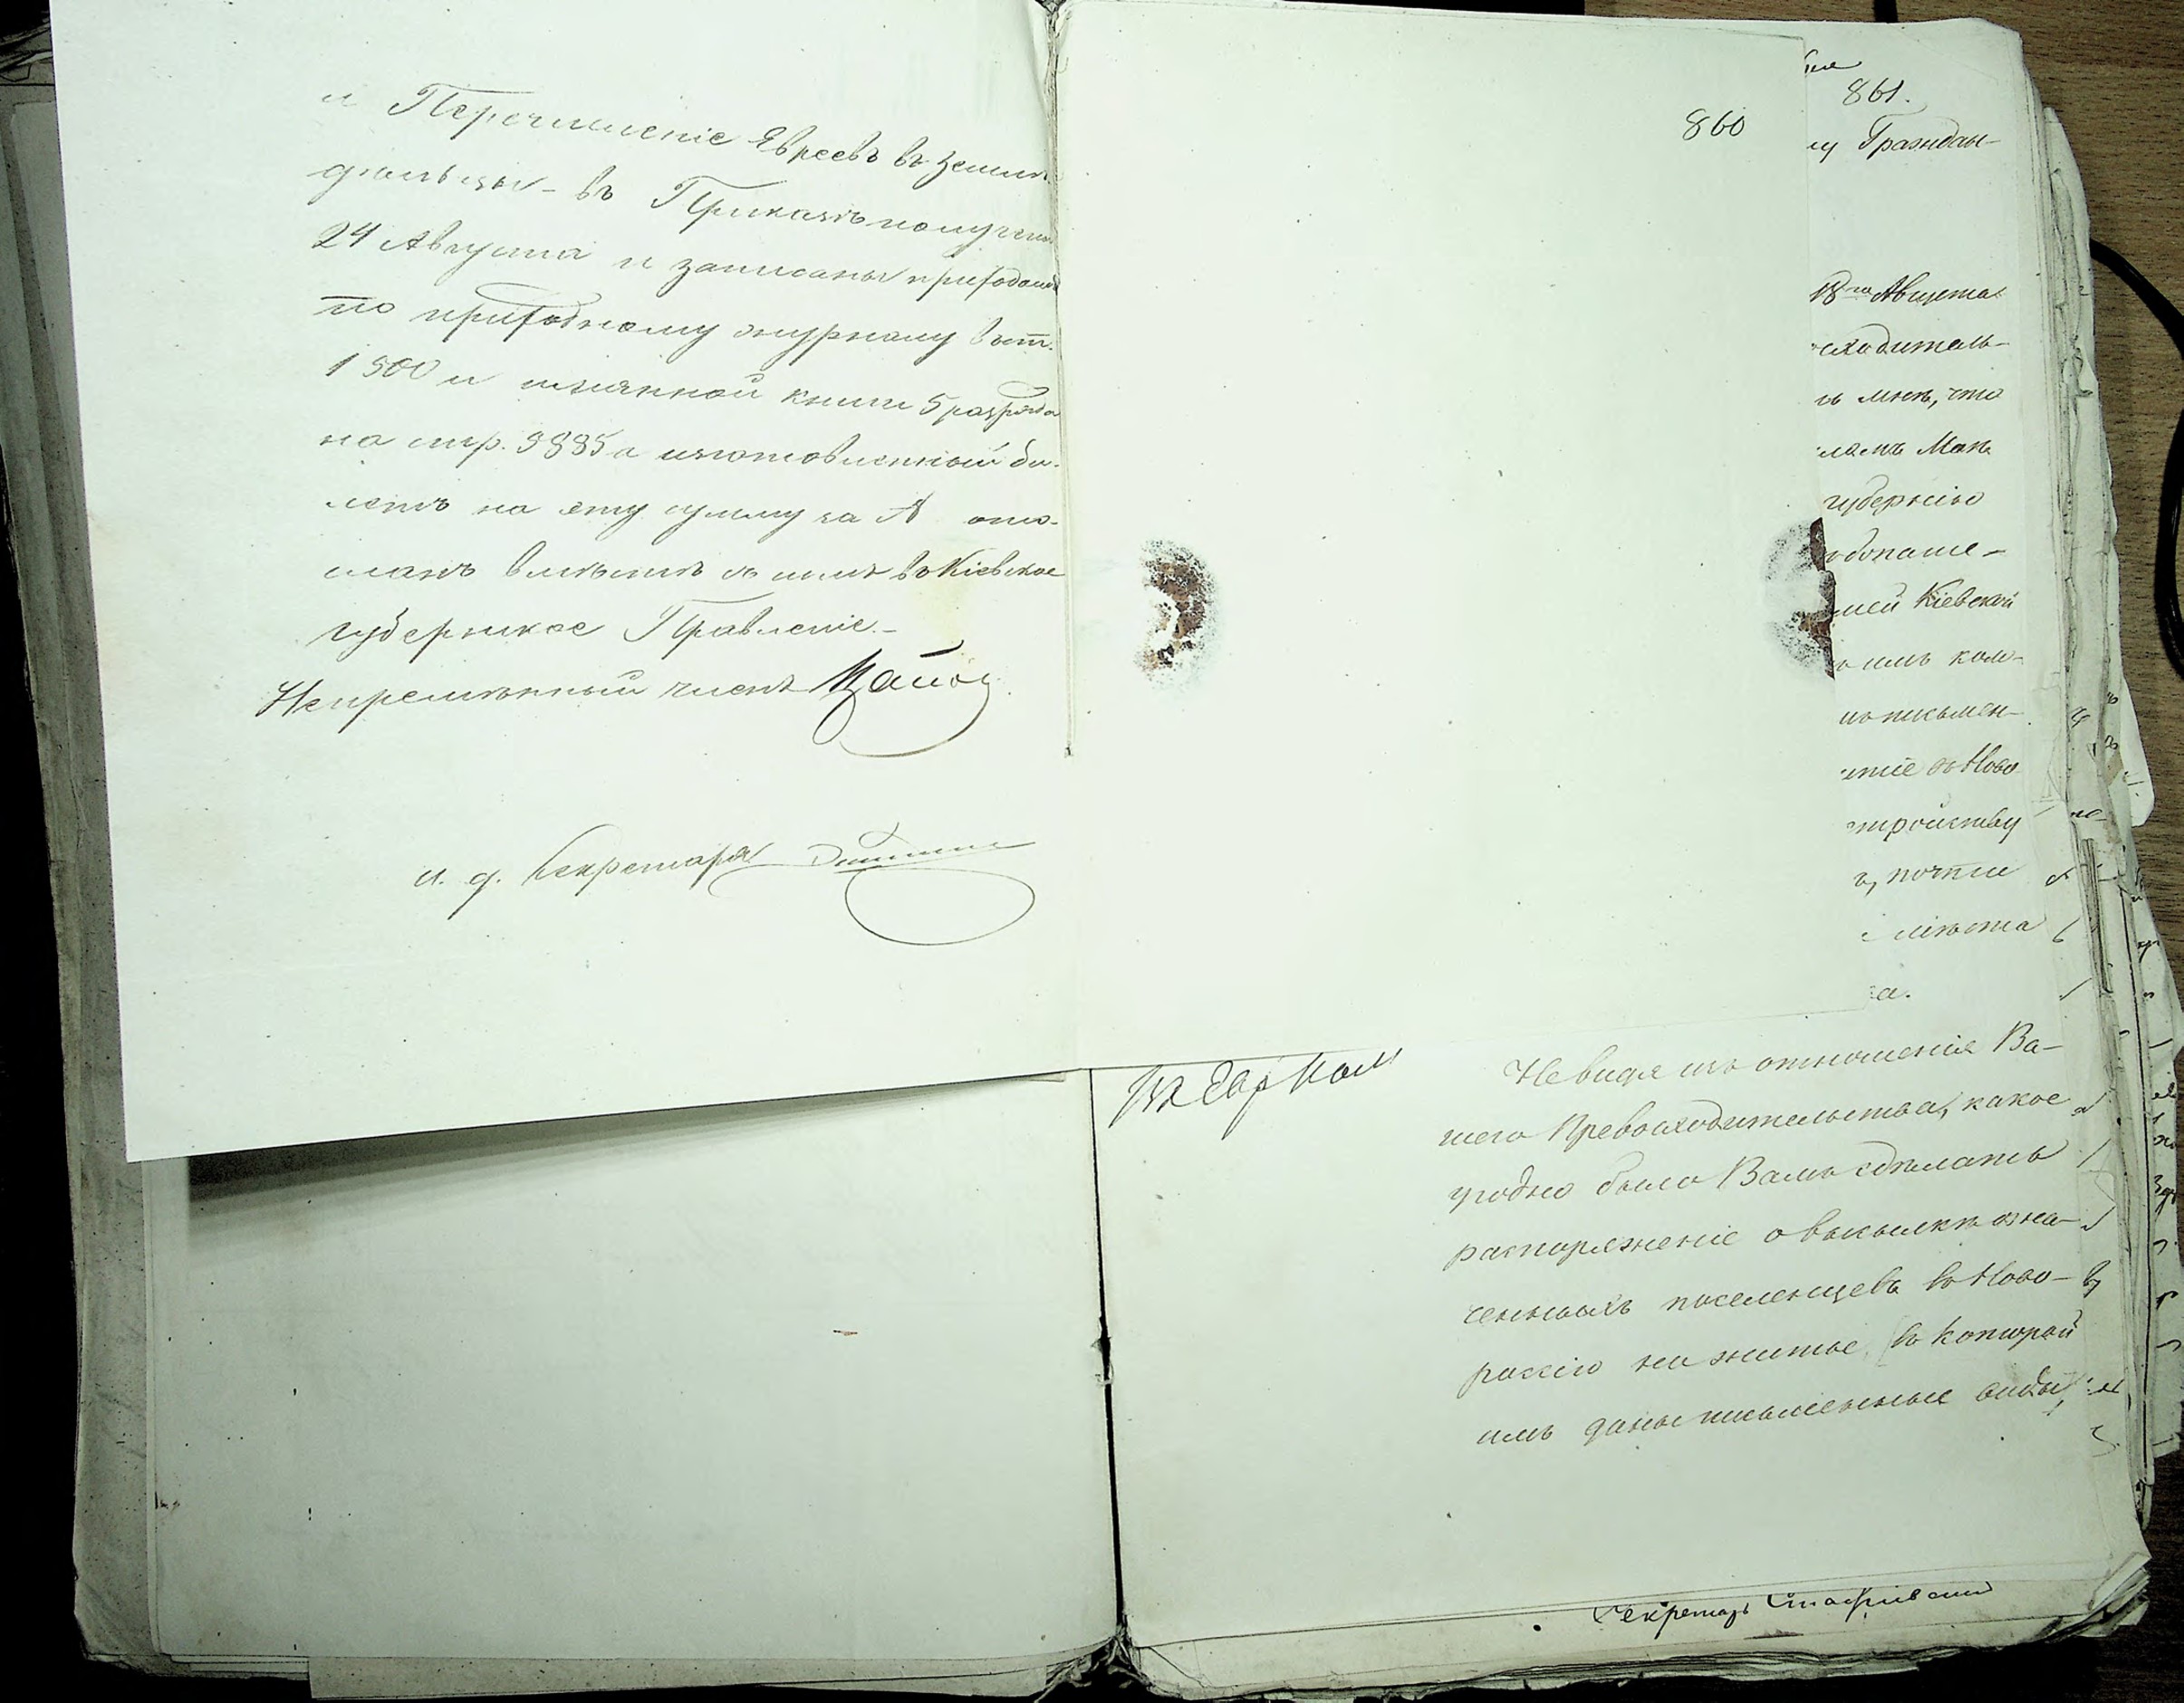 и Перечисленіе Евреевъ въ земле
дѣльцы - въ Приказѣ получены
24 Августа и записаны приходомъ
по приходному журналу въ ст.
1500 и именной книги 5 разряда
на стр. 9885 а изготовленный би-
летъ на эту сумму за № ото-
сланъ вмѣстѣ съ симъ въ Кіевское
губернское Правленіе.-
Непремѣнный членъ
и. д. Секретаря
860
861.
му Граждан-
18го Августа
сходитель-
ъ мнѣ, что
губернію
Кіевской
имъ ком-
письмен-
ніе въ Ново
тройству
ъ, почти
мѣста
а.
Не видя изъ отношенія Ва-
шего Превосходительства, какое
угодно было Вамъ сдѣлать
распоряженіе о высылкѣ озна-
ченныхъ поселенцевъ въ Ново-
россію на житье, въ которой
имъ даны письменные виды,
Секретарь